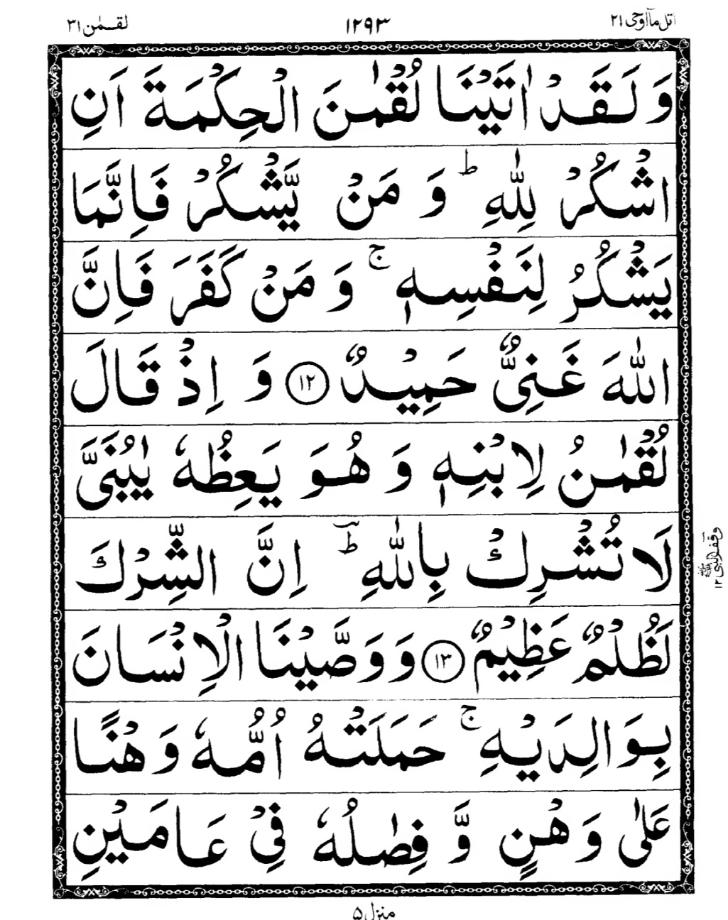 اتل ماۤ اوحی ۲۱ ۱۲۹۳ لقمٰن ۳۱
وَ لَقَدْ اٰتَيْنَا لُقْمٰنَ الْحِكْمَةَ اَنِ
اشْكُرْ لِلّٰهِ ؕ وَ مَنْ يَّشْكُرْ فَاِنَّمَا
يَشْكُرُ لِنَفْسِهٖ ۚ وَ مَنْ كَفَرَ فَاِنَّ
اللّٰهَ غَنِيٌّ حَمِيْدٌ ۝۱۲ وَ اِذْ قَالَ
لُقْمٰنُ لِابْنِهٖ وَ هُوَ يَعِظُهٗ يٰبُنَيَّ
لَا تُشْرِكْ بِاللّٰهِ ؔؕ اِنَّ الشِّرْكَ
لَظُلْمٌ عَظِيْمٌ ۝۱۳ وَ وَصَّيْنَا الْاِنْسَانَ
بِوَالِدَيْهِ ۚ حَمَلَتْهُ اُمُّهٗ وَهْنًا
عَلٰى وَهْنٍ وَّ فِصٰلُهٗ فِيْ عَامَيْنِ
وقف النبی ﷺ ۱۲
منزل ۵